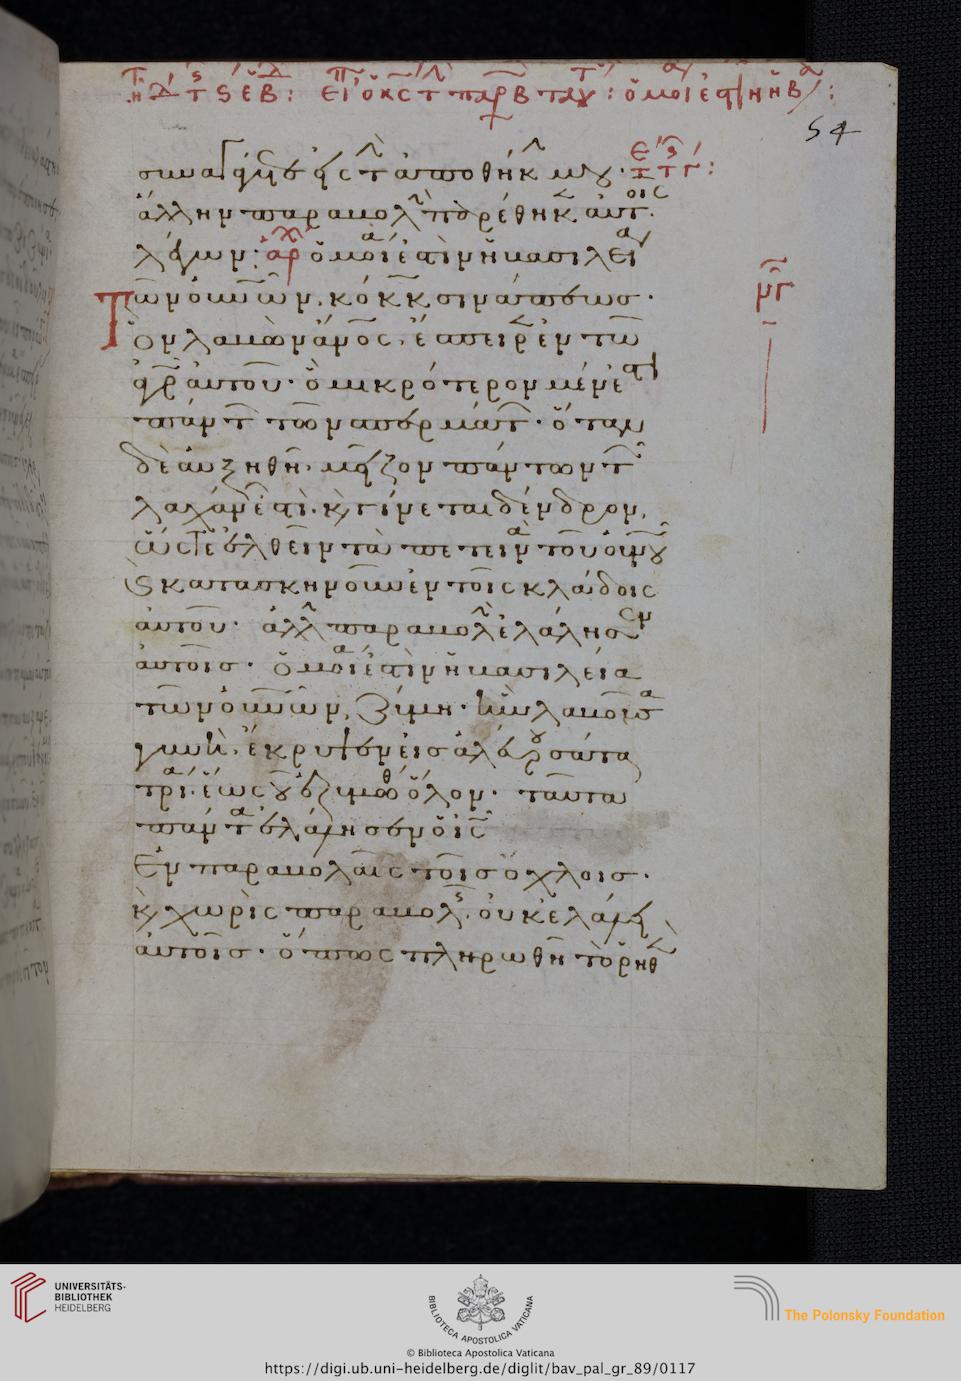 54
συναγάγετε εἰς τ ἀποθήκ μου.
ἄλλην παραβολ παρέθηκ αὐτοις.
λέγων· ἀρχ ὁμοία ἐστὶν ἡ βασιλεία
Τῶν οὐνῶν, κόκκ σινάπεως.
Ὃν λαβὼν ἄνος, ἔσπειρεν ἐν τῶ
ἀγρ αὐτοῦ. ὃ μικρότερον μέν ἐστι
πάντ τῶν σπερμάτ. ὅταν
δὲ αὐξηθῆ, μεῖζον πάντων τ
λαχάν ἐστὶ. κ γίνεται δένδρον,
ὥστε ἐλθεῖν τὰ πετεινὰ τοῦ οὐνοῦ
κ κατασκηνοῦν ἐν τοῖς κλάδοις
αὐτοῦ. ἄλλ παραβολ ἐλάλησεν
αὐτοῖς. ὁμοία ἐστὶν ἡ βασιλεία
τῶν οὐνῶν, ζύμη. ἣν λαβοῦσα
γυνὴ, ἔκρυψεν εἰς ἀλεύρου σάτα
τρία. ἕως οὗ ἐζυμώθ ὅλον. ταῦτα
πάντα ἐλάλησεν ὁ ις
Ἐν παραβολαῖς τοῖς ὄχλοις.
κ χωρὶς παραβολῆς οὐκ ἐλάλει
αὐτοῖς. ὅπως πληρωθῆ τὸ ῥηθ
UNIVERSITÄTS-
BIBLIOTHEK
HEIDELBERG
BIBLIOTECA APOSTOLICA VATICANA
The Polonsky Foundation
© Biblioteca Apostolica Vaticana
https://digi.ub.uni-heidelberg.de/diglit/bav_pal_gr_89/0117